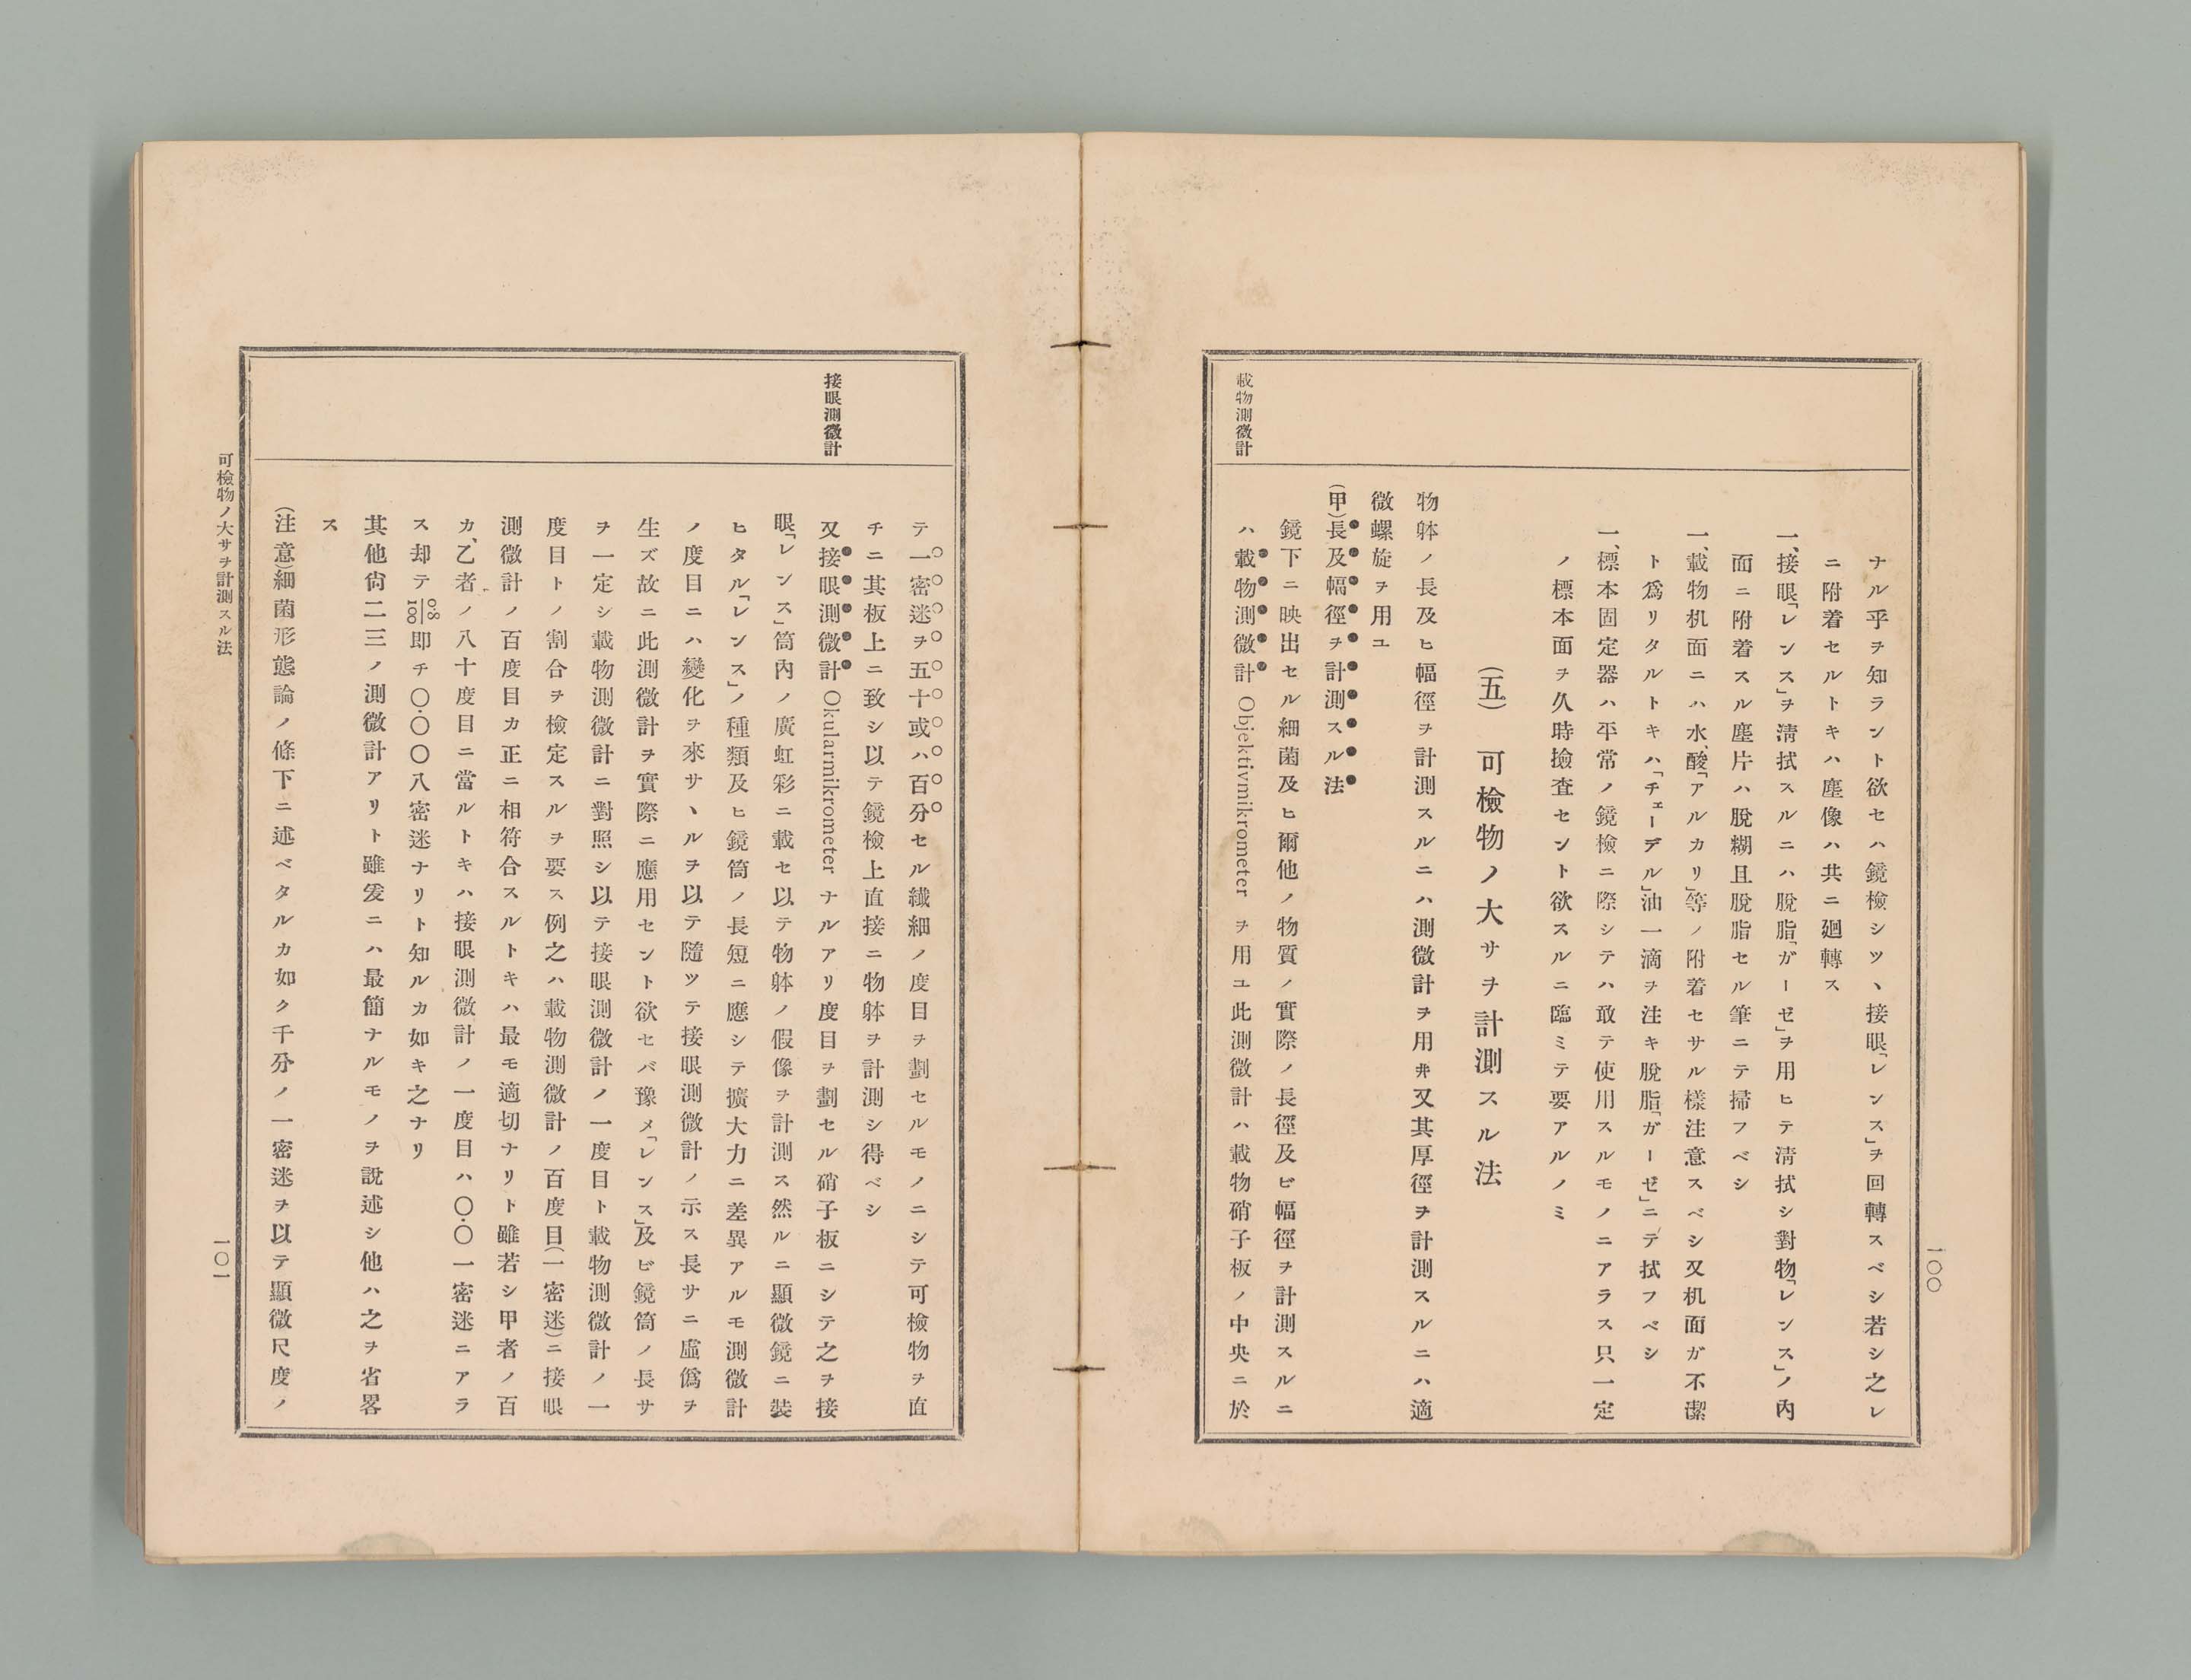 一〇〇
載物測微計
ナル乎ヲ知ラント欲セハ鏡檢シツヽ接眼「レンス」ヲ回轉スベシ若シ之レ
ニ附着セルトキハ塵像ハ共ニ廻轉ス
一、接眼「レンス」ヲ淸拭スルニハ脫脂「ガーゼ」ヲ用ヒテ淸拭シ對物「レンス」ノ內
面ニ附着スル塵片ハ脫糊且脫脂セル筆ニテ掃フベシ
一、載物机面ニハ水、酸「アルカリ」等ノ附着セサル樣注意スベシ又机面ガ不潔
ト爲リタルトキハ「チェーデル」油一滴ヲ注キ脫脂「ガーゼ」ニテ拭フベシ
一、標本固定器ハ平常ノ鏡檢ニ際シテハ敢テ使用スルモノニアラス只一定
ノ標本面ヲ久時撿査セント欲スルニ臨ミテ要アルノミ
(五) 可檢物ノ大サヲ計測スル法
物躰ノ長及ヒ幅徑ヲ計測スルニハ測微計ヲ用井又其厚徑ヲ計測スルニハ適
微螺旋ヲ用ユ
(甲)長及幅徑ヲ計測スル法
鏡下ニ映出セル細菌及ヒ爾他ノ物質ノ實際ノ長徑及ビ幅徑ヲ計測スルニ
ハ載物測微計 Objektivmikrometer ヲ用ユ此測微計ハ載物硝子板ノ中央ニ於
接眼測微計
テ一密迷ヲ五十或ハ百分セル纎細ノ度目ヲ劃セルモノニシテ可檢物ヲ直
チニ其板上ニ致シ以テ鏡檢上直接ニ物躰ヲ計測シ得ベシ
又接眼測微計 Okularmikrometer ナルアリ度目ヲ劃セル硝子板ニシテ之ヲ接
眼「レンス」筒內ノ廣虹彩ニ載セ以テ物躰ノ假像ヲ計測ス然ルニ顯微鏡ニ裝
ヒタル「レンス」ノ種類及ヒ鏡筒ノ長短ニ應シテ擴大力ニ差異アルモ測微計
ノ度目ニハ變化ヲ來サヽルヲ以テ隨ツテ接眼測微計ノ示ス長サニ虛僞ヲ
生ズ故ニ此測微計ヲ實際ニ應用セント欲セバ豫メ「レンス」及ビ鏡筒ノ長サ
ヲ一定シ載物測微計ニ對照シ以テ接眼測微計ノ一度目ト載物測微計ノ一
度目トノ割合ヲ檢定スルヲ要ス例之ハ載物測微計ノ百度目(一密迷)ニ接眼
測微計ノ百度目カ正ニ相符合スルトキハ最モ適切ナリト雖若シ甲者ノ百
カ、乙者ノ八十度目ニ當ルトキハ接眼測微計ノ一度目ハ〇.〇一密迷ニアラ
ス却テ 0.8/100 即チ〇.〇〇八密迷ナリト知ルカ如キ之ナリ
其他尙二三ノ測微計アリト雖爰ニハ最簡ナルモノヲ說述シ他ハ之ヲ省畧
ス
(注意)細菌形態論ノ條下ニ述ベタルカ如ク千分ノ一密迷ヲ以テ顯微尺度ノ
可檢物ノ大サヲ計測スル法
一〇一